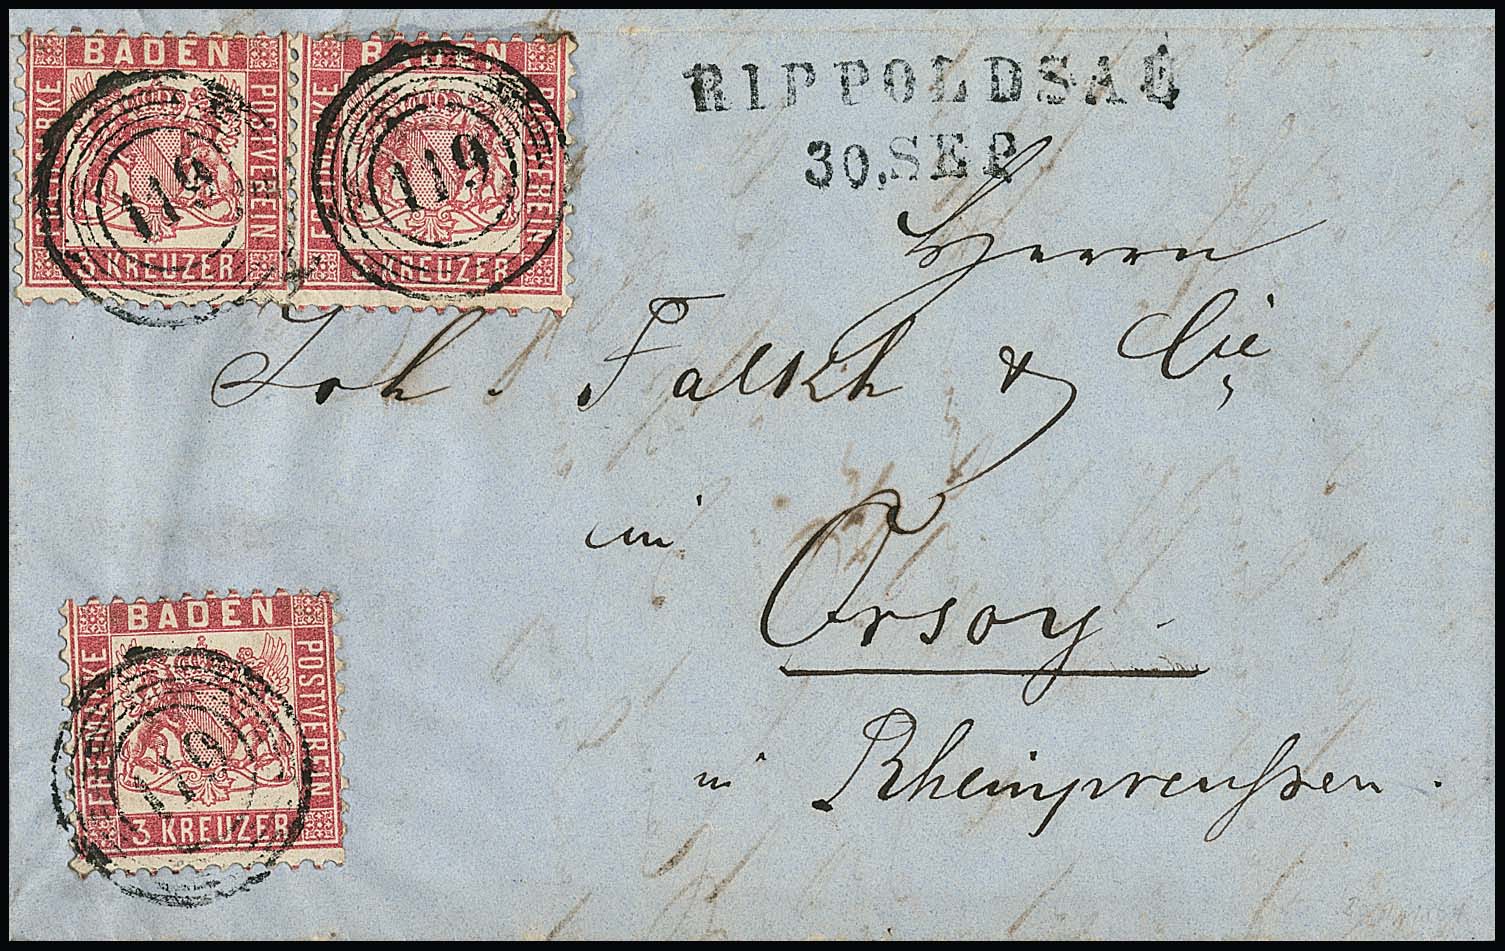 BADEN
FREIMARKE
POSTVEREIN
3 KREUZER
119
BADEN
FREIMARKE
POSTVEREIN
3 KREUZER
119
RIPPOLDSAU
30. SEP.
Herrn
Joh. Falckh & Cie
in
Orsoy
in Rheinpreußen.
BADEN
FREIMARKE
POSTVEREIN
3 KREUZER
119